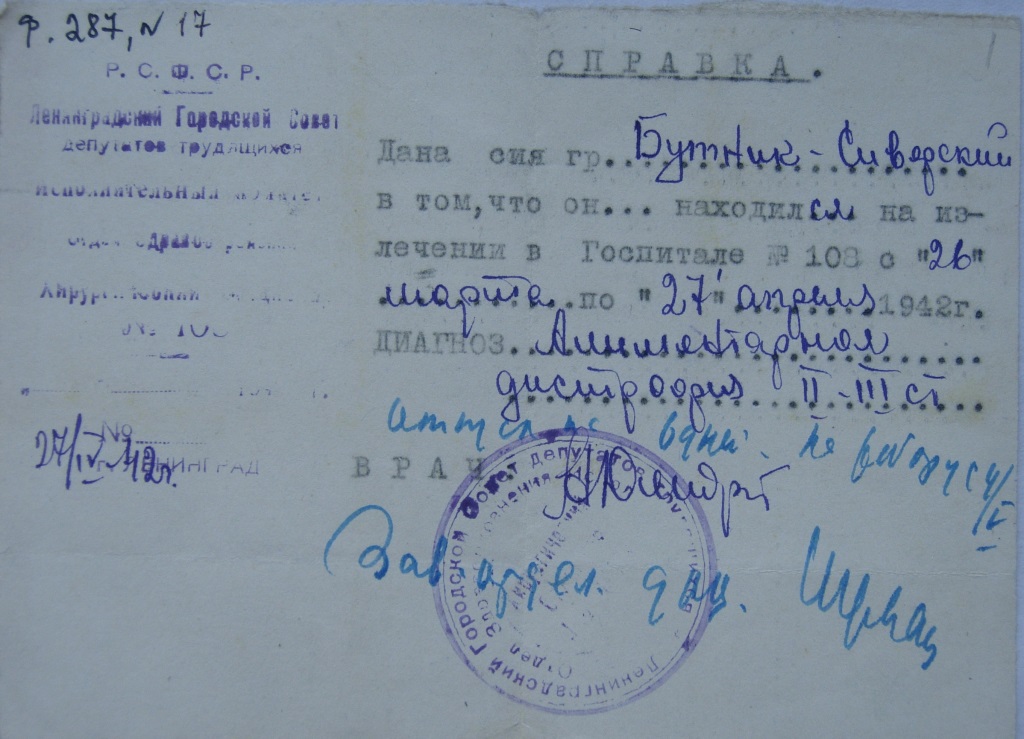 Ф. 287, N 17
Р. С. Ф. С. Р.
Ленинградский Городской Совет
депутатов трудящихся
Исполнительный
Отдел Здраво
Хирургический
№ 108
№
27/IV 42г.
ЛЕНИНГРАД
1
СПРАВКА.
Дана сия гр. Бутник-Сиверский
в том, что он... находился на из-
лечении в Госпитале № 108 с "26"
марта по "27" апреля 1942г.
ДИАГНОЗ. Алиментарная
дистрофия II-III ст
ВРАЧ
Зав. отдел.
Ленинградский Городской Совет депутатов трудящихся
Отдел Здравоохранения